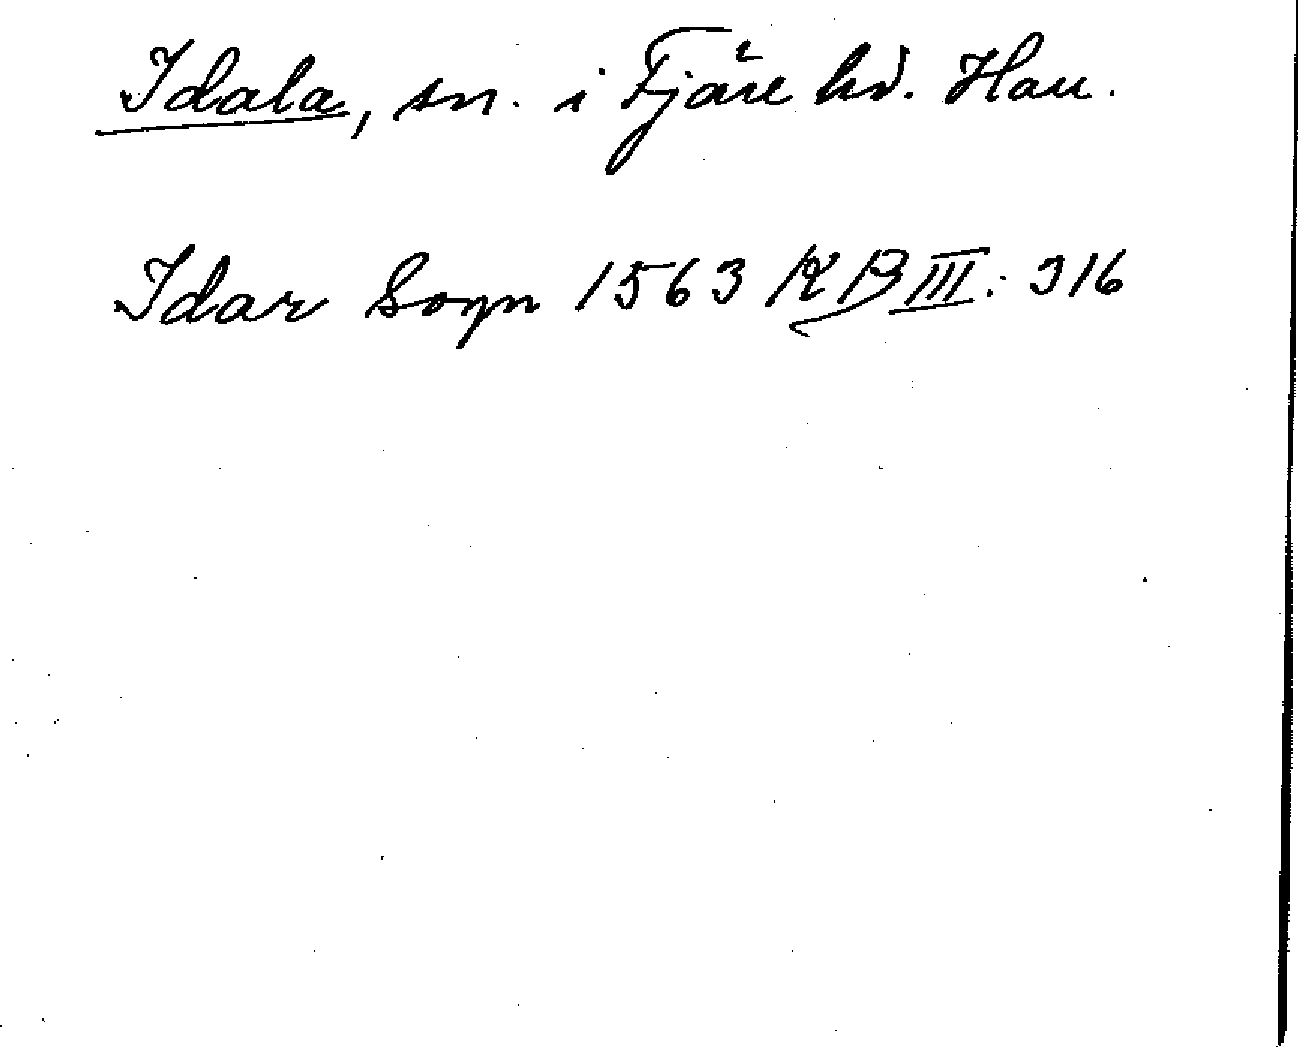 Idala, sn. i Fjäre hd. Hall.
Idar Sogn 1563 KB III: 316